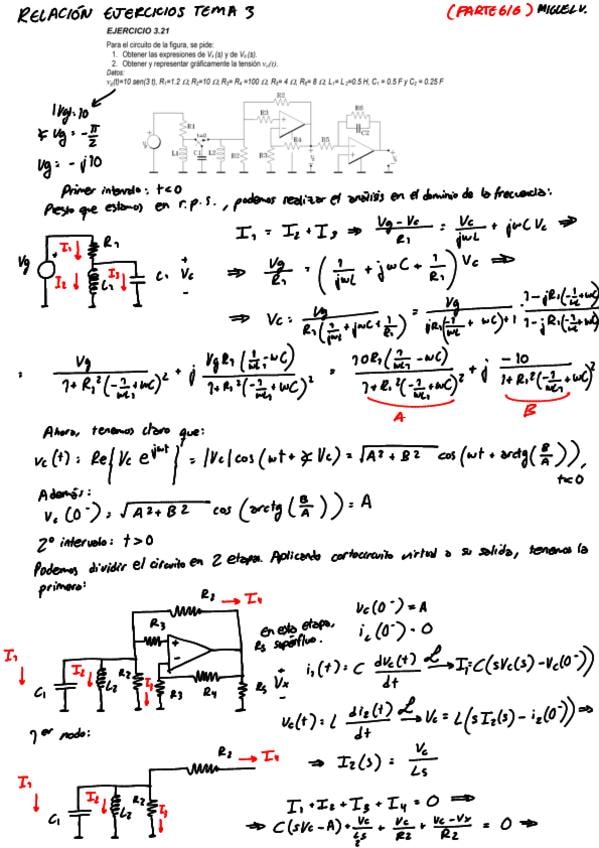 RELACIÓN EJERCICIOS TEMA 3 (PARTE 6/6) MIGUEL V.
EJERCICIO 3.21
Para el circuito de la figura, se pide:
1. Obtener las expresiones de Vₓ(s) y de Vₒ(s).
2. Obtener y representar gráficamente la tensión vₓ(t).
Datos:
v_g(t)=10 sen(3 t), R₁=1.2 Ω, R₂=10 Ω, R₃= R₄ =100 Ω, R₅= 4 Ω, R₆= 8 Ω, L₁= L₂=0.5 H, C₁ = 0.5 F y C₂ = 0.25 F
|Vg| = 10
∡ Vg = -π/2
Vg = -j10
R1 L1 t=0 C1 L2 R2 R3 R2 R3 R4 R5 R6 C2
Primer intervalo: t<0
Puesto que estamos en r.p.s., podemos realizar el análisis en el dominio de la frecuencia:
Vg I₁ R₁ I₂ L₁ I₃ C₁ + Vc -
I₁ = I₂ + I₃ ⇒ (Vg - Vc)/R₁ = Vc/(jωL) + jωC Vc ⇒
⇒ Vg/R₁ = (1/(jωL) + jωC + 1/R₁) Vc ⇒
⇒ Vc = Vg/(R₁(1/(jωL) + jωC + 1/R₁)) = Vg/(jR₁(-1/(ωL₁) + ωC)+1) · (1-jR₁(-1/(ωL₁)+ωC))/(1-jR₁(-1/(ωL₁)+ωC))
= Vg/(1+R₁²(-1/(ωL₁)+ωC)²) + j VgR₁(1/(ωL₁)-ωC)/(1+R₁²(-1/(ωL₁)+ωC)²) = 10R₁(1/(ωL₁)-ωC)/(1+R₁²(-1/(ωL₁)+ωC)²) + j -10/(1+R₁²(-1/(ωL₁)+ωC)²)
A B
Ahora, tenemos claro que:
vc(t) = Re{Vc e^(jωt)} = |Vc| cos(ωt + ∡Vc) = √(A²+B²) cos(ωt + arctg(B/A)), t<0
Además:
vc(0⁻) = √(A²+B²) cos(arctg(B/A)) = A
2º intervalo: t>0
Podemos dividir el circuito en 2 etapas. Aplicando cortocircuito virtual a su salida, tenemos la
primera:
I₁ C₁ I₂ L₂ R₂ I₃ R₃ R₂ → I₄ + - R₃ R₄ R₅ + Vx -
En esta etapa, R₅ superfluo.
vc(0⁻) = A
i_L(0⁻) = 0
i₁(t) = C dvc(t)/dt ℒ→ I₁=C(sVc(s)-Vc(0⁻))
vc(t) = L di₂(t)/dt ℒ→ Vc = L(sI₂(s) - i₂(0⁻)) ⇒
⇒ I₂(s) = Vc/Ls
1er nodo:
I₁ C₁ I₂ L₂ R₂ I₃ R₂ → I₄
I₁+I₂+I₃+I₄ = 0 ⇒
⇒ C(sVc-A) + Vc/L₂s + Vc/R₂ + (Vc-Vx)/R₂ = 0 ⇒